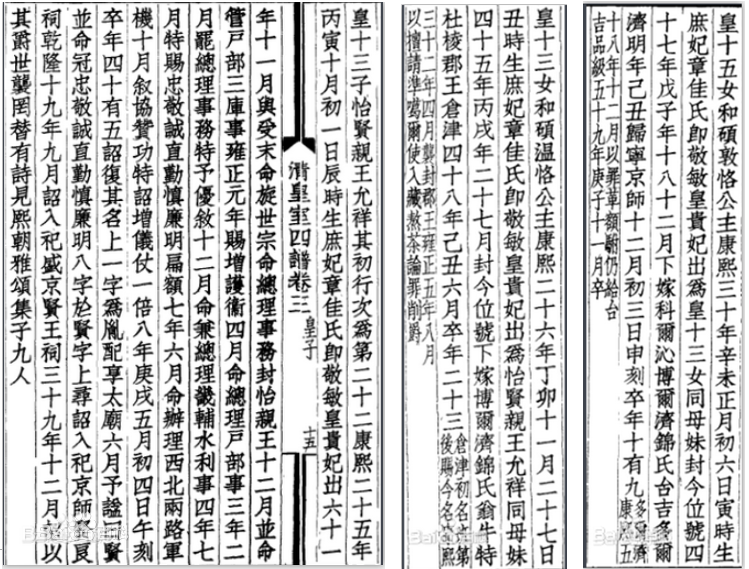 皇十三子怡賢親王允祥其初行次爲第二十二康熙二十五年
丙寅十月初一日辰時生庶妃章佳氏卽敬敏皇貴妃出六十一
清皇室四譜卷三 皇子 十五
年十一月與受末命旋世宗命總理事務封怡親王十二月並命
管戸部三庫事雍正元年賜增護衞四月命總理戸部事三年二
月罷總理事務特予優敘十二月命兼總理畿輔水利事四年七
月特賜忠敬誠直勤慎廉明扁額七年六月命辦理西北兩路軍
機十月叙協贊功特詔增儀仗一倍八年庚戌五月初四日午刻
卒年四十有五詔復其名上一字爲胤配享太廟六月予謚曰賢
並命冠忠敬誠直勤慎廉明八字於賢字上尋詔入祀京師賢良
祠乾隆十九年九月詔入祀盛京賢王祠三十九年十二月詔以
其爵世襲罔替有詩見熙朝雅頌集子九人
皇十三女和碩温恪公主康熙二十六年丁卯十一月二十七日
丑時生庶妃章佳氏卽敬敏皇貴妃出爲怡賢親王允祥同母妹
四十五年丙戌年二十七月封今位號下嫁博爾濟錦氏翁牛特
杜棱郡王倉津四十八年己丑六月卒年二十三 倉津初名班第
後賜今名康熙
三十二年四月襲封郡王雍正五年八月
以擅請準噶爾使入藏熬茶論罪削爵
皇十五女和碩敦恪公主康熙三十年辛未正月初六日寅時生
庶妃章佳氏卽敬敏皇貴妃出爲皇十三女同母妹封今位號四
十七年戊子年十八十二月下嫁科爾沁博爾濟錦氏台吉多爾
濟明年己丑歸寧京師十二月初三日申刻卒年十有九 多爾濟
康熙五
十八年十二月以罪革額駙仍給台
吉品級五十九年庚子十一月卒